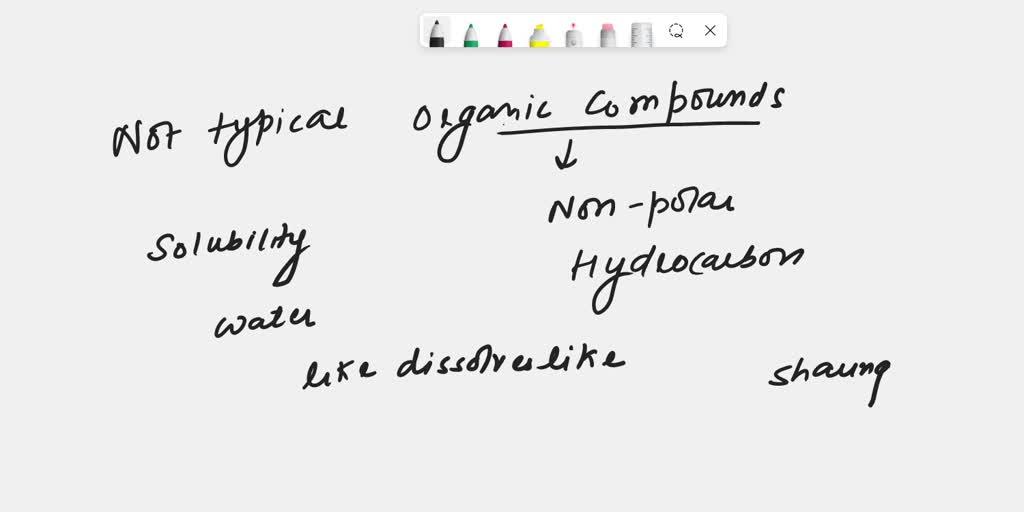 Not typical organic compounds
Non-polar
Solubility
Hydrocarbon
water
like dissolves like
sharing